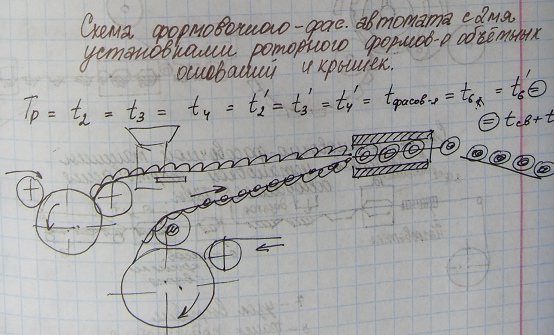 Схема формовочного-фас. автомата с 2мя
установками роторного формов-я объётных
оснований и крышек.
Tp = t₂ = t₃ = t₄ = t₂' = t₃' = t₄' = tфасов-я = t₆ = t₆' =
= tсв + t